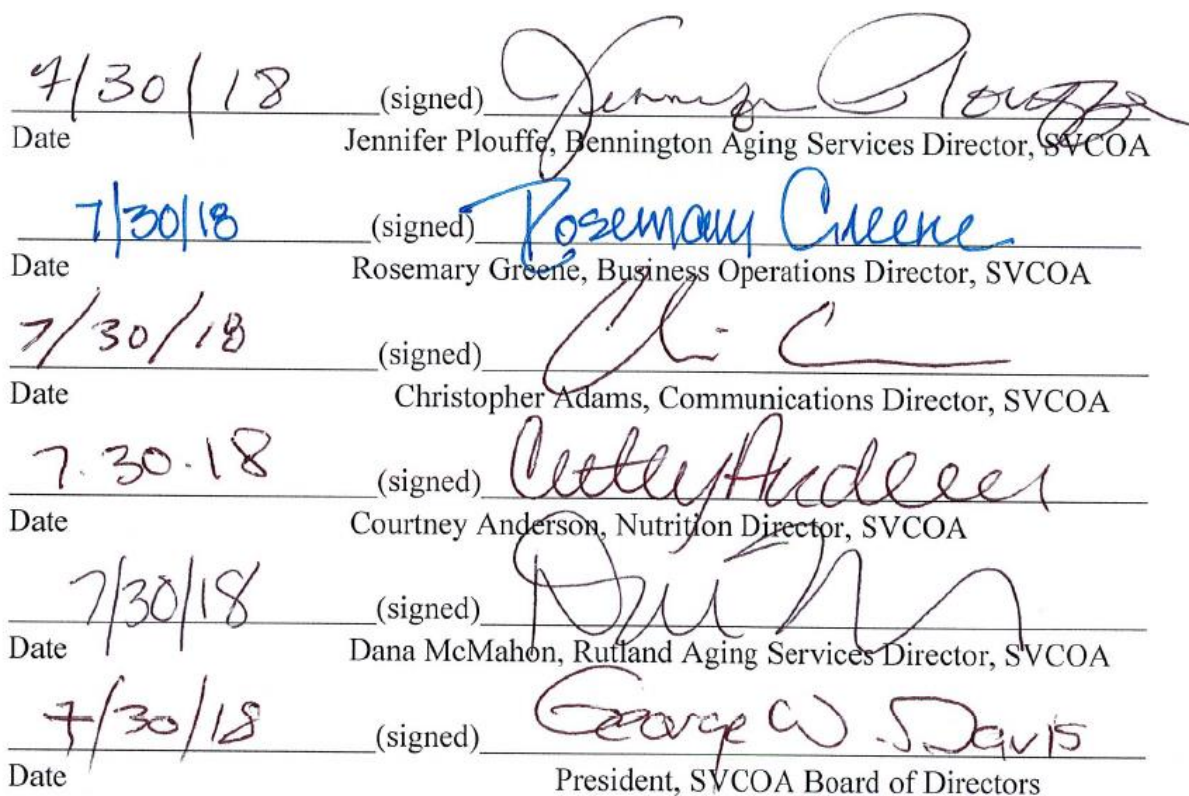 7/30/18 (signed) Jennifer Plouffe
Date Jennifer Plouffe, Bennington Aging Services Director, SVCOA
7/30/18 (signed) Rosemary Greene
Date Rosemary Greene, Business Operations Director, SVCOA
7/30/18 (signed)
Date Christopher Adams, Communications Director, SVCOA
7.30.18 (signed)
Date Courtney Anderson, Nutrition Director, SVCOA
7/30/18 (signed)
Date Dana McMahon, Rutland Aging Services Director, SVCOA
7/30/18 (signed) George W. Davis
Date President, SVCOA Board of Directors